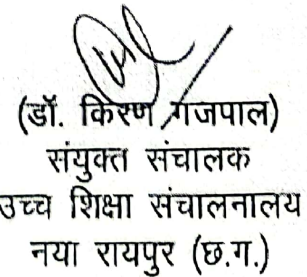 (डॉ. किरण गजपाल)
संयुक्त संचालक
उच्च शिक्षा संचालनालय
नया रायपुर (छ.ग.)